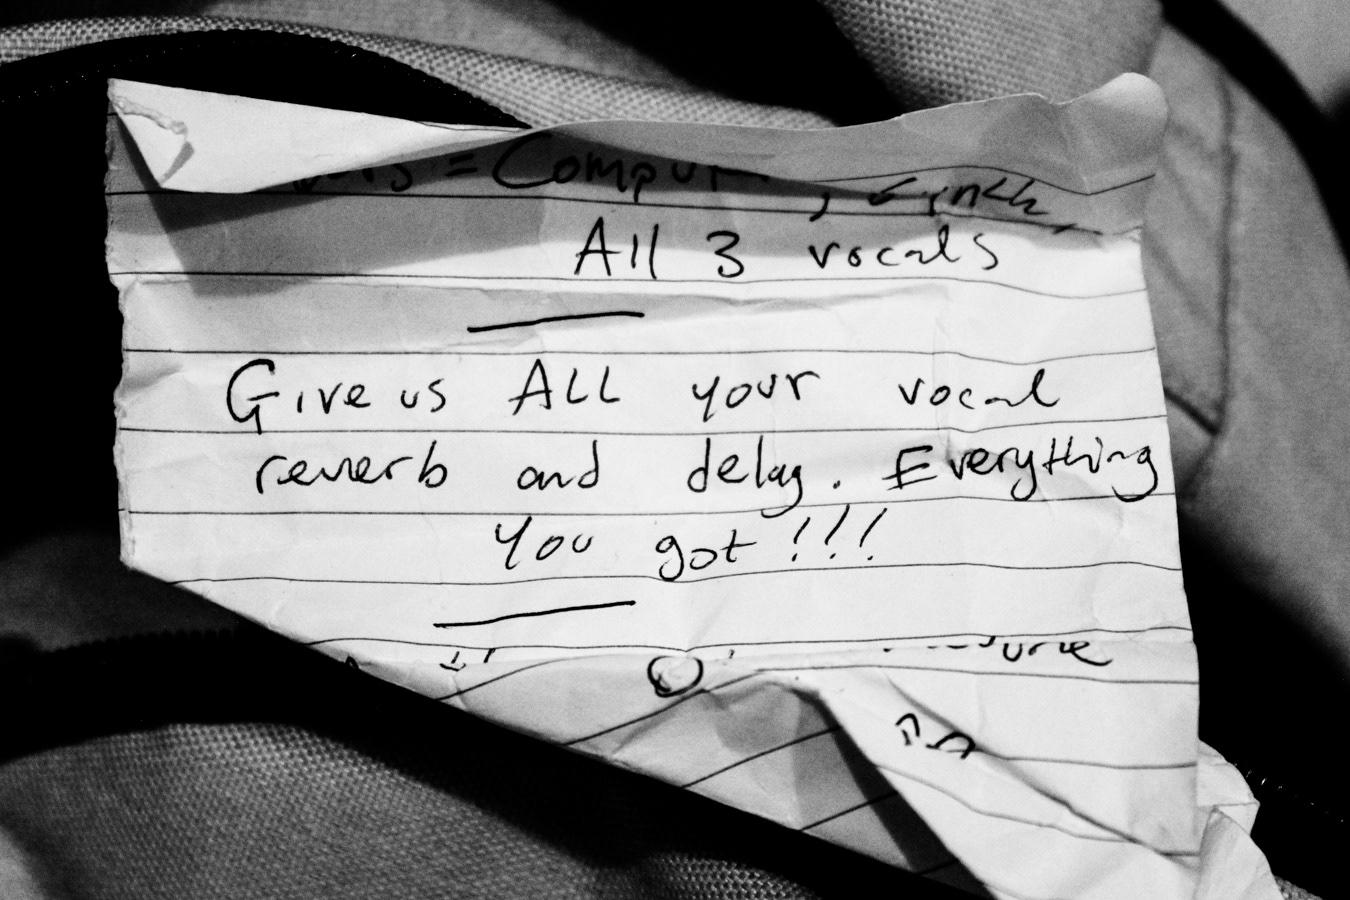 = Compu , Synth,
All 3 vocals
Give us ALL your vocal
reverb and delay. Everything
you got!!!